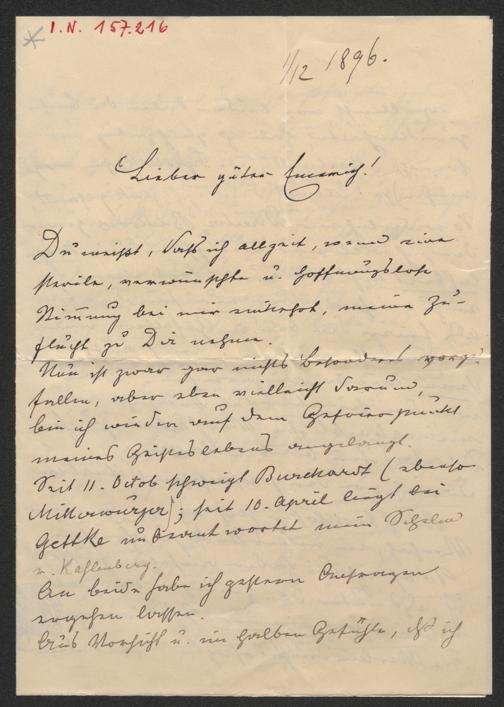 I.N. 157.216
1/12 1896.
Lieber guter Emerich!
Du weißt, daß ich allzeit, wenn eine
sterile, verwünschte u. hoffnungslose
Stimmung bei mir einkehrt, meine Zu-
flucht zu Dir nehme.
Nun ist zwar gar nichts besonderes vorge-
fallen, aber eben vielleicht darum,
bin ich wieder auf dem Gefrierpunkt
meines Geisteslebens angelangt.
Seit 11. Octob schweigt Burckhardt (ebenso
Mitterwurzer); seit 10. April liegt bei
Gettke unbeantwortet mein Schelm
v. Kahlenberg.
An beide habe ich gestern Anfragen
ergehen lassen.
Aus Vorsicht u. im halben Gefühle, daß ich